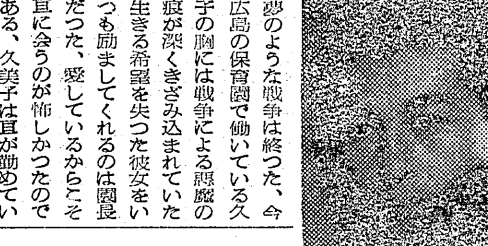 夢のような戦争は終つた、今
広島の保育園で働いている久
子の胸には戦争による悪魔の
痕が深くきざみ込まれていた
生きる希望を失つた彼女をい
つも励ましてくれるのは園長
だつた、愛しているからこそ
亘に会うのが怖しかつたので
ある、久美子は亘が勤めてい